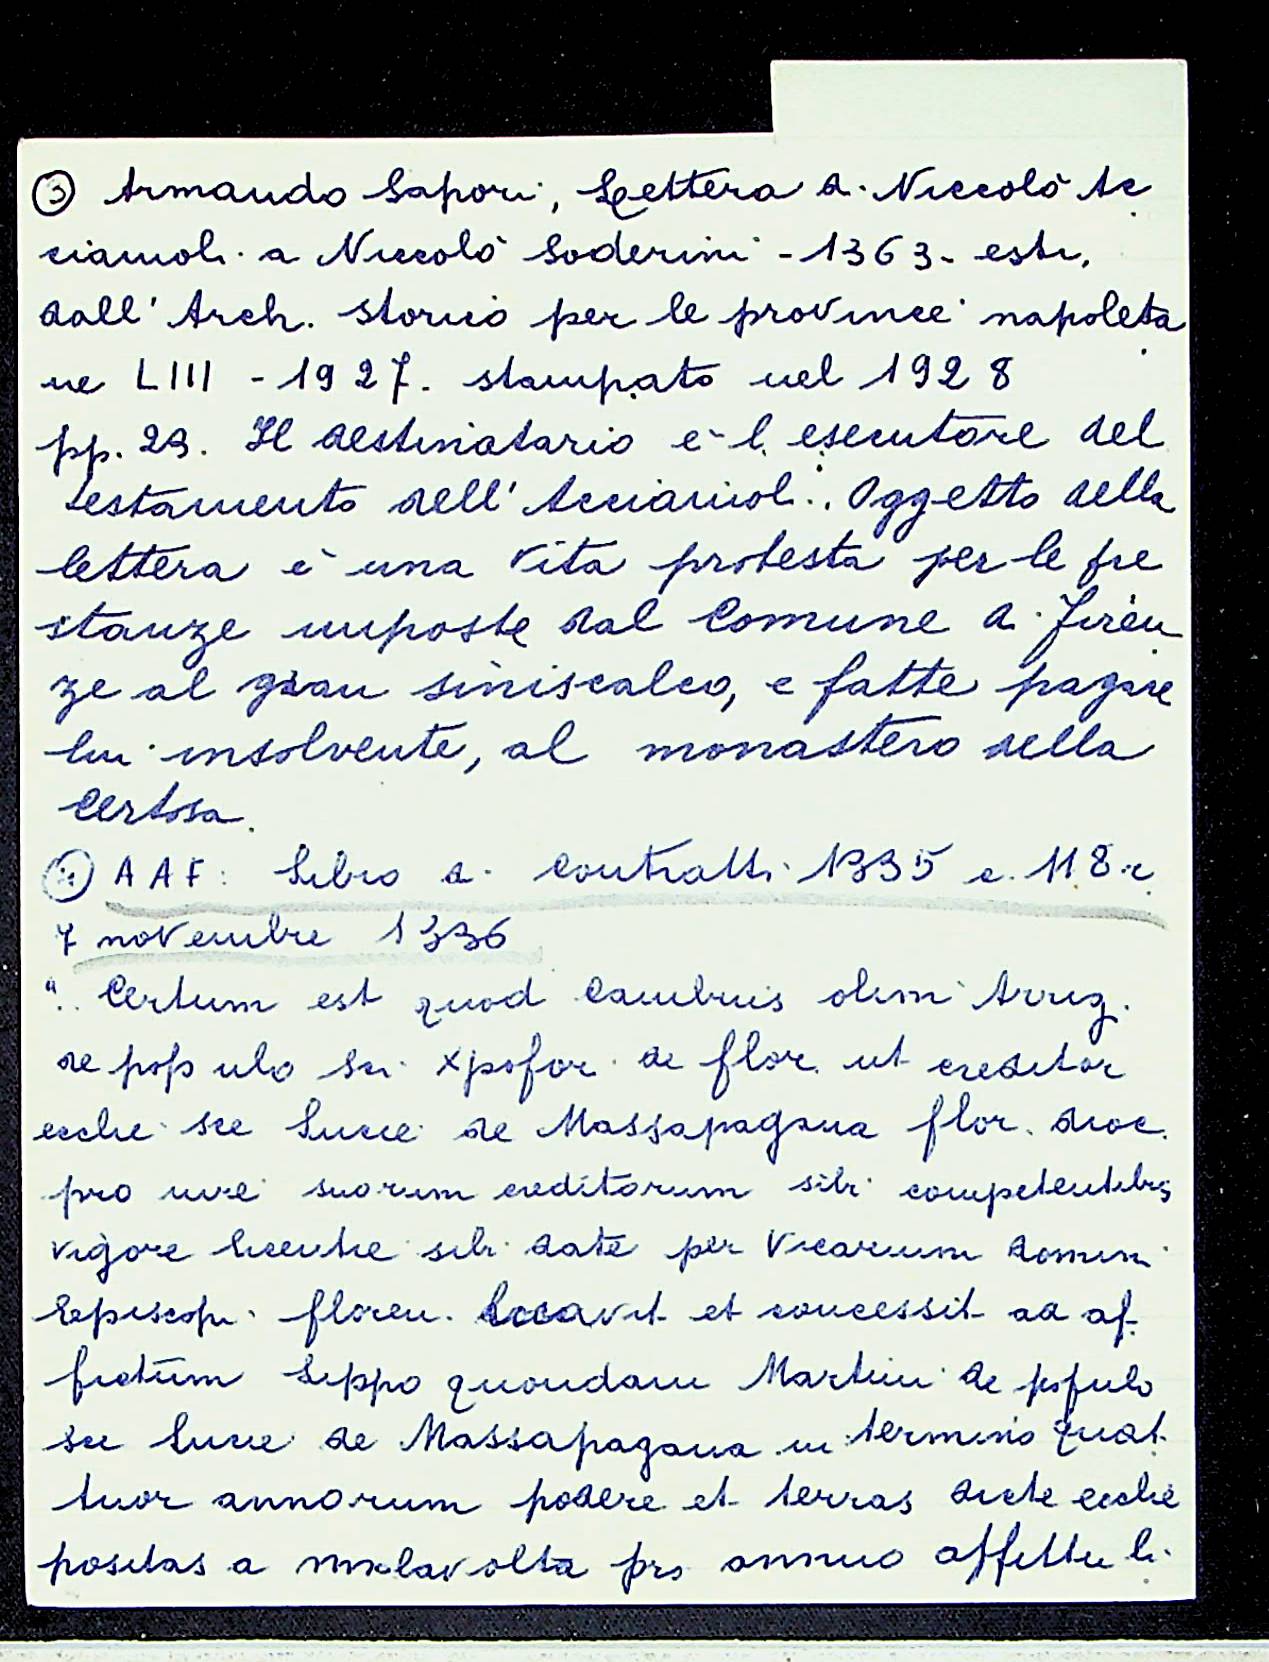 ③ Armando Sapori, Lettera di Niccolò Ac
ciaiuoli a Niccolò Soderini - 1363 - estr.
dall' Arch. storico per le province napoleta
ne LIII - 1927. stampato nel 1928
pp. 23. Il destinatario è l'esecutore del
testamento dell' Acciaiuoli. Oggetto della
lettera è una vita protesta per le pre
stanze imposte dal Comune di Firen
ze al gran siniscalco, e fatte pagare
lui insolvente, al monastero della
Certosa.
④ AAF: Libro di contratti 1335 c. 118 r
7 novembre 1336
".. Certum est quod Cambius olim Arrig.
de populo sci Xpofor de flor. ut creditor
ecclie sce Lucie de Massapagana flor. dioc.
pro iure suorum creditorum sibi competentibus
vigore licentie sibi date per Vicarium domini
Episcopi floren. locavit et concessit ad af
fictum Lippo quondam Martini de populo
sce Lucie de Massapagana in termino quat
tuor annorum podere et terras dicte ecclie
positas a pro annuo affittu li.